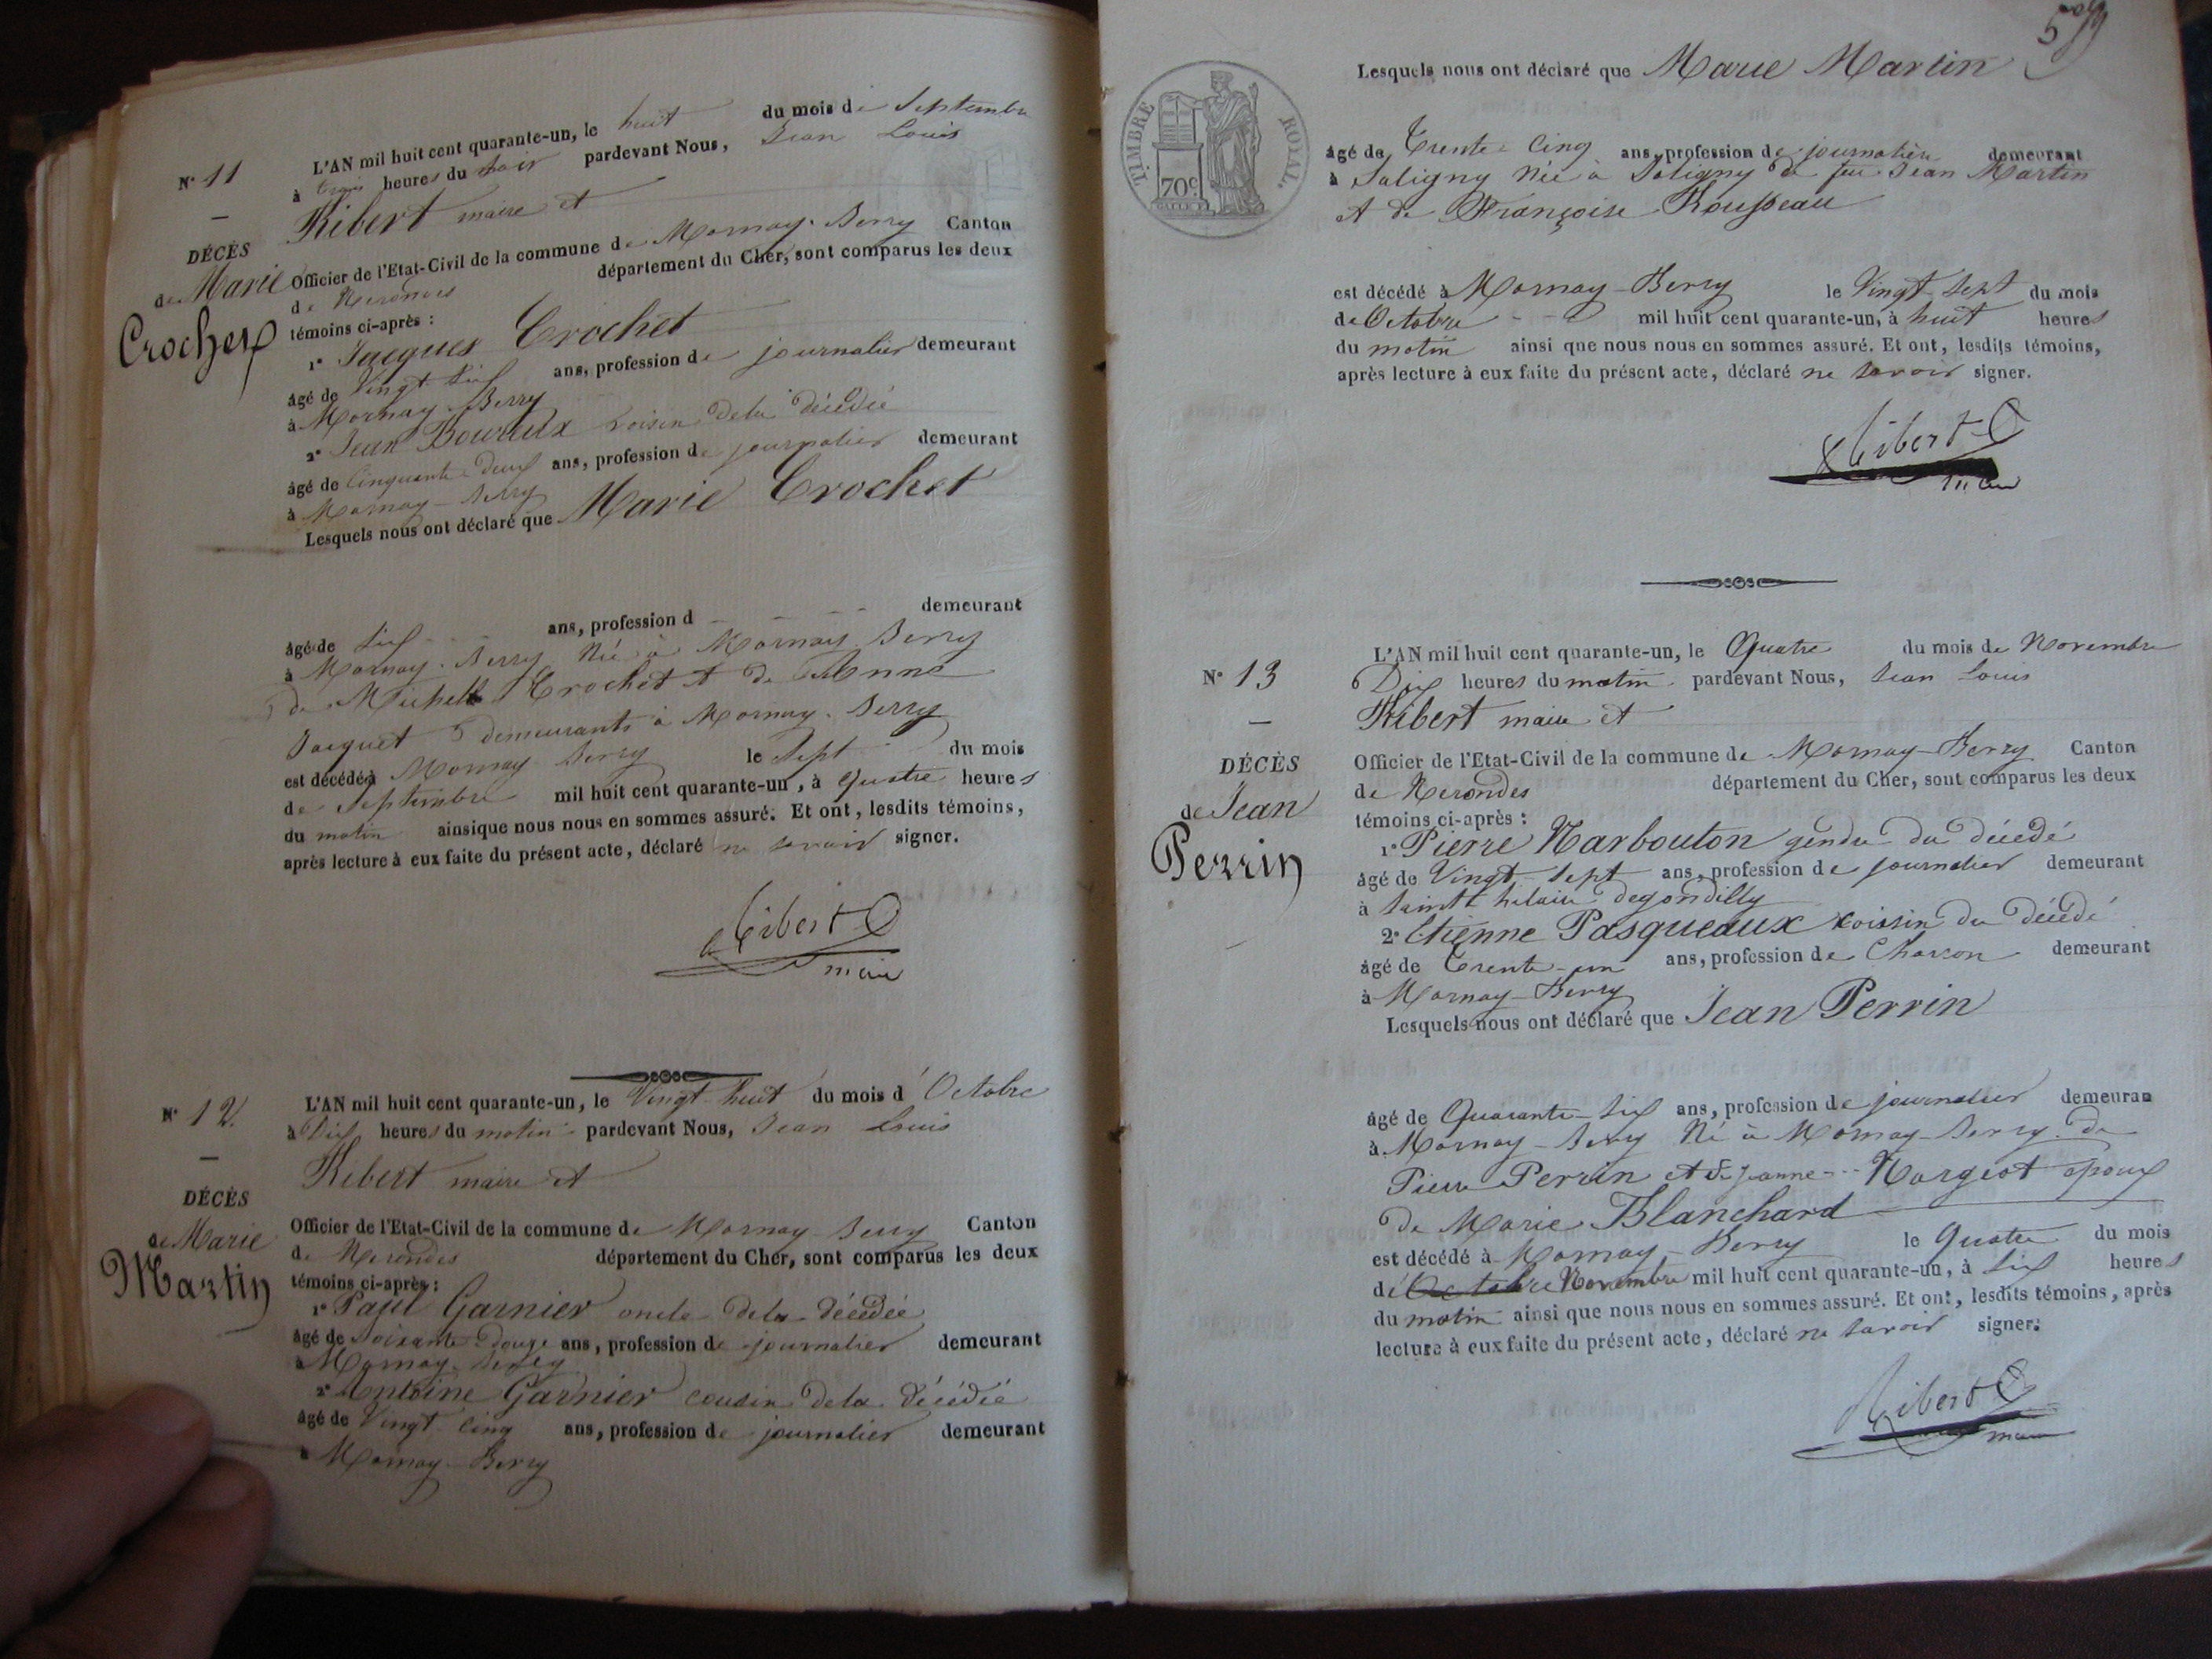 N° 11
DÉCÈS
de Marie
Crochet
L'AN mil huit cent quarante-un, le huit du mois de Septembre
à trois heures du soir pardevant Nous, Jean Louis
Ribert maire et
Officier de l'Etat-Civil de la commune de Mornay-Berry Canton
de Nerondes département du Cher, sont comparus les deux
témoins ci-après :
1° Jacques Crochet
âgé de Vingt Six ans, profession de journalier demeurant
à Mornay-Berry
2° Jean voisin dela décédée
âgé de Cinquante-Deux ans, profession de journalier demeurant
à Mornay-Berry
Lesquels nous ont déclaré que Marie Crochet
âgé de Six ans, profession d demeurant
à Mornay-Berry Née à Mornay-Berry
de Michel Crochet et de Anne
Jacquet demeurants à Mornay-Berry
est décédée à Mornay Berry le Sept du mois
de Septembre mil huit cent quarante-un, à quatre heures
du matin ainsi que nous nous en sommes assuré. Et ont, lesdits témoins,
après lecture à eux faite du présent acte, déclaré ne savoir signer.
Ribert
maire
N° 12
DÉCÈS
de Marie
Martin
L'AN mil huit cent quarante-un, le Vingt huit du mois d'Octobre
à Dix heures du matin pardevant Nous, Jean Louis
Ribert maire et
Officier de l'Etat-Civil de la commune de Mornay-Berry Canton
de Nerondes département du Cher, sont comparus les deux
témoins ci-après :
1° Paul Garnier oncle dela décédée
âgé de Soixante Douze ans, profession de journalier demeurant
à Mornay-Berry
2° Antoine Garnier cousin dela décédée
âgé de Vingt-Cinq ans, profession de journalier demeurant
à Mornay-Berry
TIMBRE ROYAL.
70c.
Lesquels nous ont déclaré que Marie Martin
âgé de Trente-Cinq ans, profession de journalière demeurant
à Saligny Née à Saligny de feu Jean Martin
et de Françoise Rousseau
est décédé à Mornay-Berry le Vingt-Sept du mois
de Octobre mil huit cent quarante-un, à huit heures
du matin ainsi que nous nous en sommes assuré. Et ont, lesdits témoins,
après lecture à eux faite du présent acte, déclaré ne savoir signer.
Ribert
maire
N° 13
DÉCÈS
de Jean
Perrin
L'AN mil huit cent quarante-un, le Quatre du mois de Novembre
Dix heures du matin pardevant Nous, Jean Louis
Ribert maire et
Officier de l'Etat-Civil de la commune de Mornay-Berry Canton
de Nerondes département du Cher, sont comparus les deux
témoins ci-après :
1° Pierre Narbouton gendre du décedé
âgé de Vingt-Sept ans, profession de journalier demeurant
à Saint hilaire degondilly
2° Etienne Pasqueaux voissin du décédé
âgé de Trente-un ans, profession de Charron demeurant
à Mornay-Berry
Lesquels nous ont déclaré que Jean Perrin
âgé de Quarante-Six ans, profession de journalier demeuran
à Mornay-Berry Né à Mornay-Berry de
Pierre Perrin et de Jeanne Margeot époux
de Marie Blanchard
est décédé à Mornay-Berry le Quatre du mois
de Octobre Novembre mil huit cent quarante-un, à Six heures
du matin ainsi que nous nous en sommes assuré. Et ont, lesdits témoins, après
lecture à eux faite du présent acte, déclaré ne savoir signer.
Ribert
maire